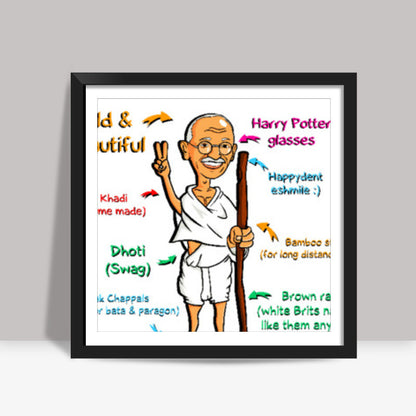 ld &
utiful
Harry Potter
glasses
Happydent
eshmile :)
Khadi
me made)
Dhoti
(Swag)
Bamboo s
(for long distanc
k Chappals
r bata & paragon)
Brown ra
(white Brits n
like them any